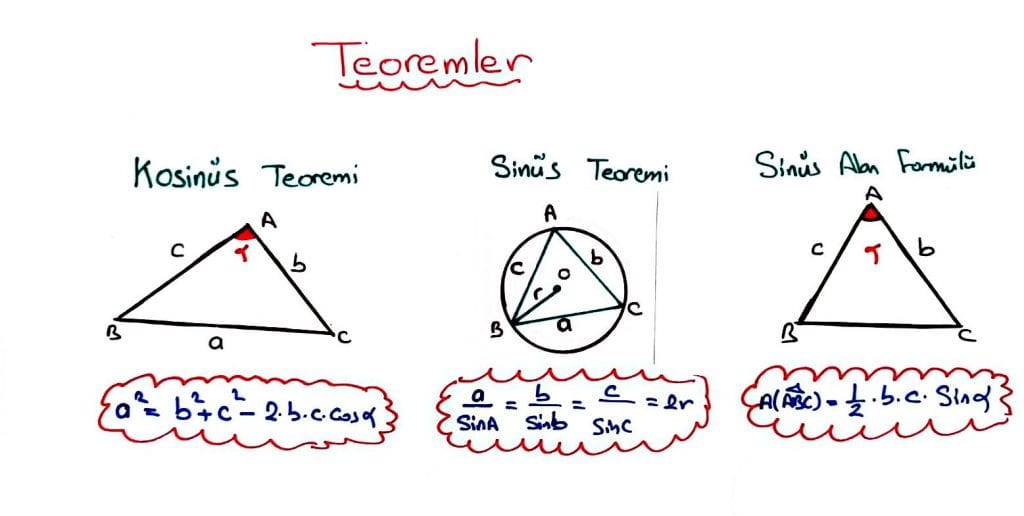 Teoremler
Kosinüs Teoremi
A
c
α
b
B
a
C
a² = b² + c² - 2.b.c.cosα
Sinüs Teoremi
A
c
b
o
r
B
a
C
a/SinA = b/Sinb = c/SinC = 2r
Sinüs Alan Formülü
A
c
α
b
B
C
A(ABC) = 1/2 . b . c . Sinα